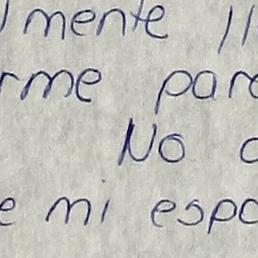 mente
rme par
No
e mi espo